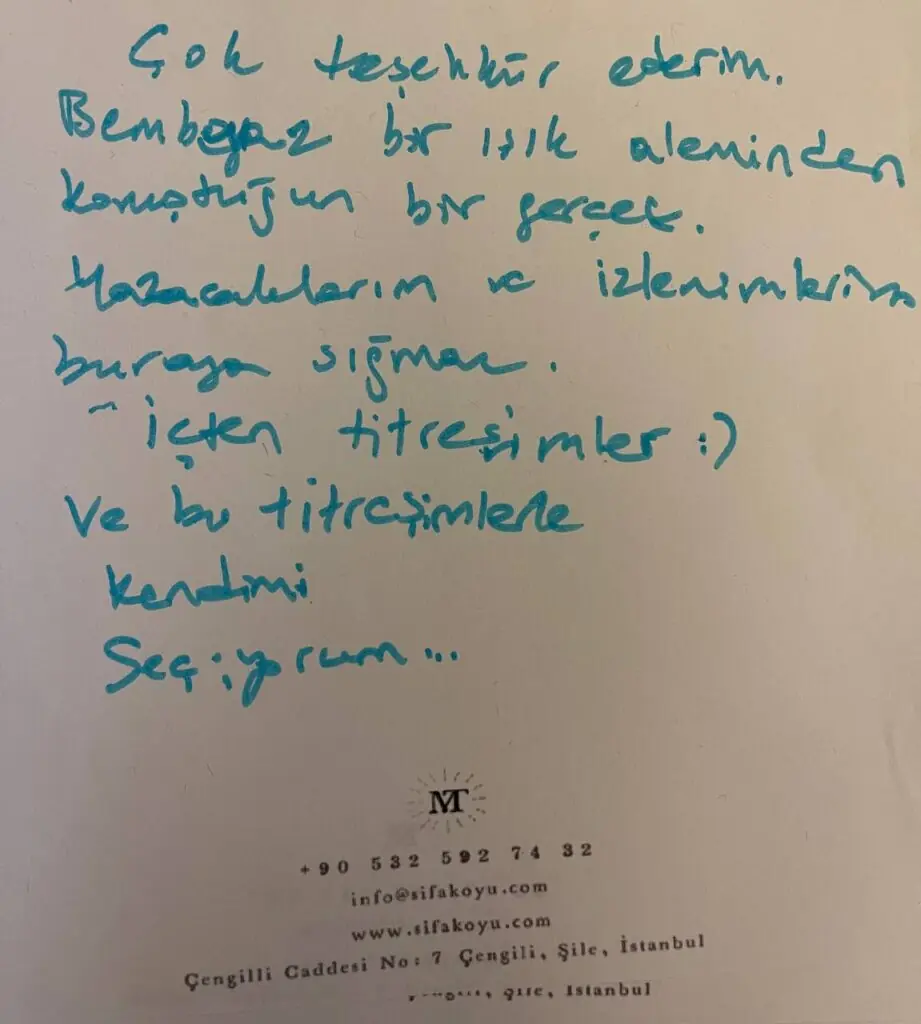 Çok teşekkür ederim.
Bembeyaz bir ışık aleminden
konuştuğun bir gerçek.
Yazacaklarım ve izlenimlerim
buraya sığmaz.
İçten titreşimler :)
Ve bu titreşimlerle
kendimi
Seçiyorum...
MT
+90 532 592 74 32
info@sifakoyu.com
www.sifakoyu.com
Çengilli Caddesi No: 7 Çengili, Şile, İstanbul
Şile, İstanbul